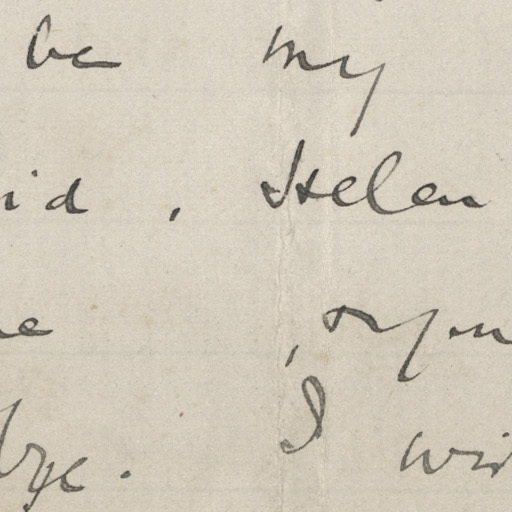 be my
id, Helen
e,
bye. I wi